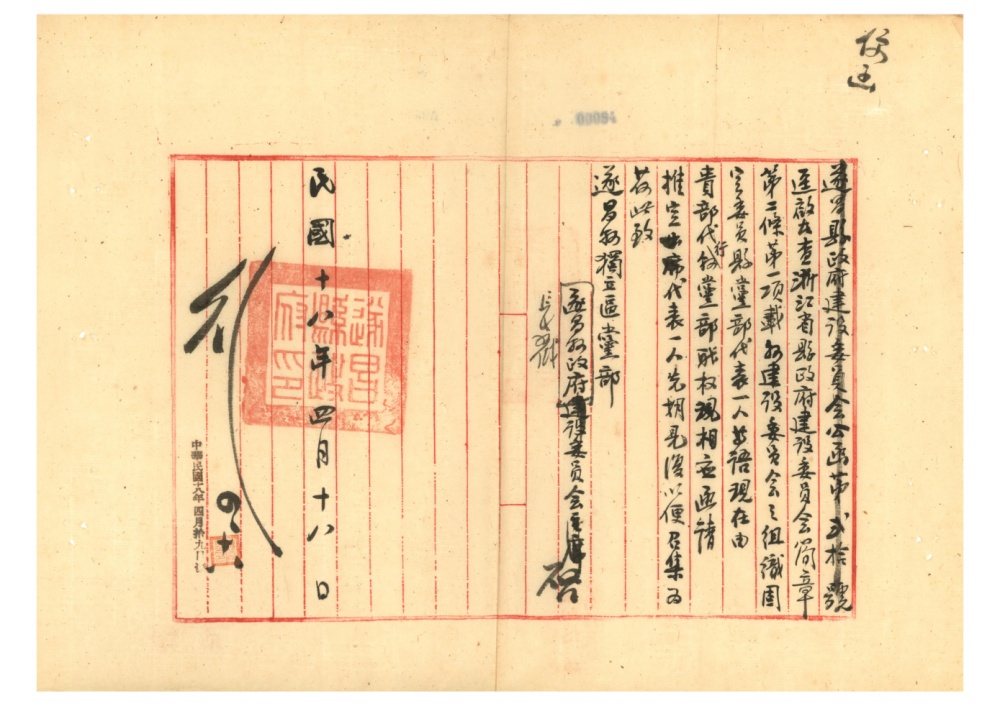 00084
遂昌縣政府建設委員會公函第弍拾號
逕啟者查浙江省縣政府建設委員會簡章
第二條第一項載縣建設委員會之組織團
定委員縣黨部代表一人等語現在由
貴部代行縣黨部職权現相应函請
推定出席代表一人先期見復以便召集为
荷此致
遂昌縣獨立區黨部
遂昌縣政府建設委員會主席
啓
遂昌縣政府印
民國十八年四月十八日
四 十八
中華民國十八年四月拾九日